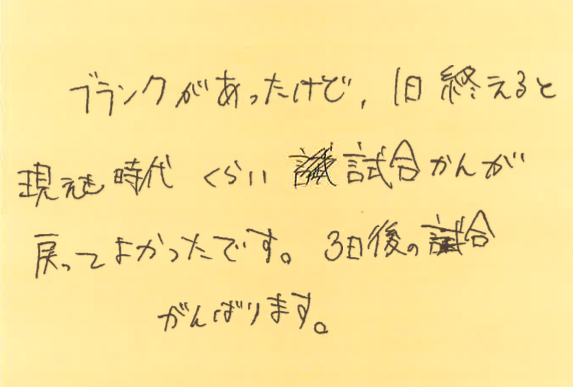 ブランクがあったけど、1日終えると
現えき時代くらい試合かんが
戻ってよかったです。3日後の試合
がんばります。